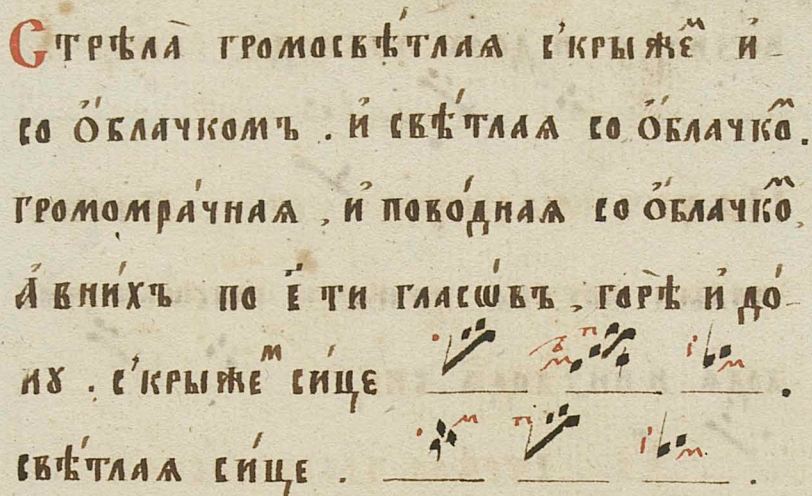 Стрѣла̀ громосвѣ́тлая с̾крыже́ⷨ и҆
со ѻ҆́блачкомъ . и҆ свѣ́тлая со ѻ҆́блачкоⷨ.
громомра́чная , и҆ пово́дная со ѻ҆́блачкоⷨ,
а҆́ вни́хъ по е҃ ти гласѡ́въ , горѣ̀ и҆ до́
лꙋ . с̾крыжеⷨ си́це .
свѣ́тлая си́це . .